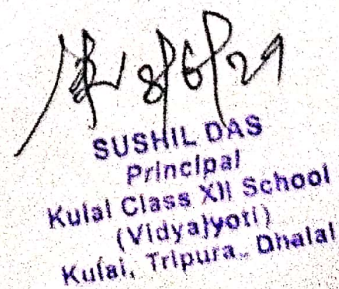 8/6/21
SUSHIL DAS
Principal
Kulai Class XII School
(Vidyajyoti)
Kulai, Tripura, Dhalai